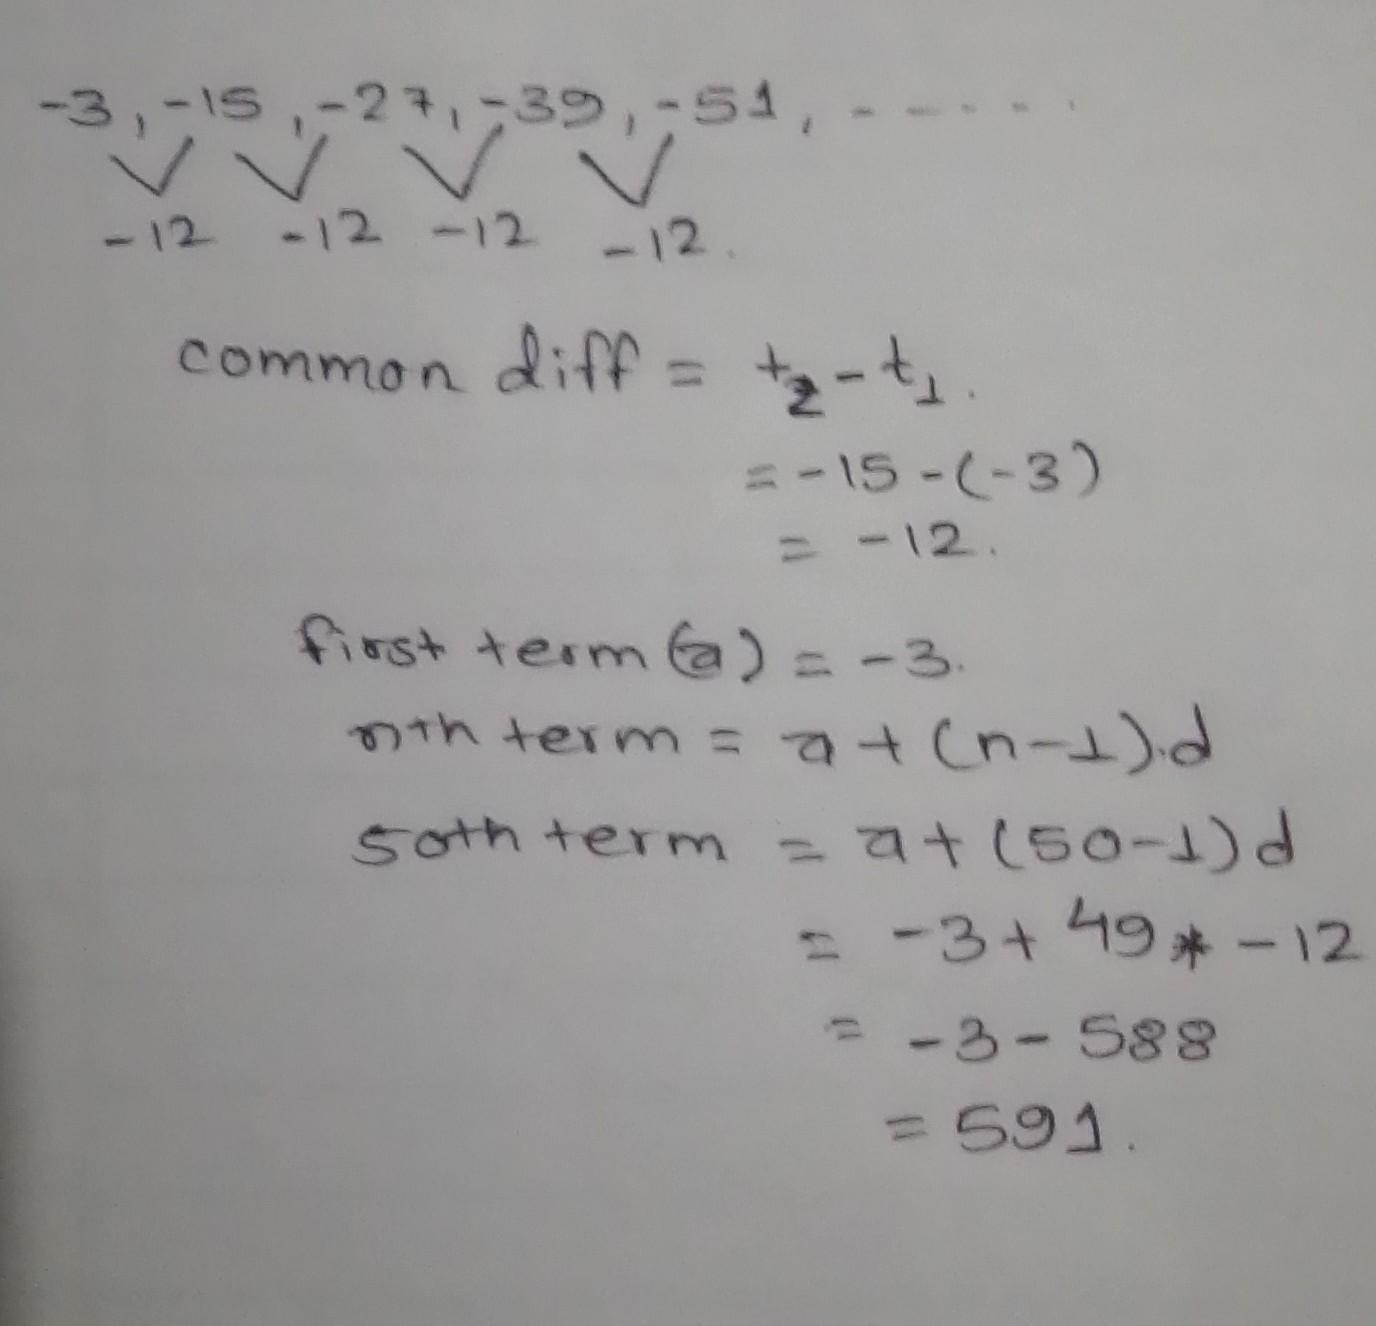 -3, -15, -27, -39, -51, - - - - - -
-12 -12 -12 -12.
common diff = t₂ - t₁.
= -15 - (-3)
= -12.
first term (a) = -3.
nth term = a + (n-1).d
50th term = a + (50-1)d
= -3 + 49 * -12
= -3 - 588
= 591.